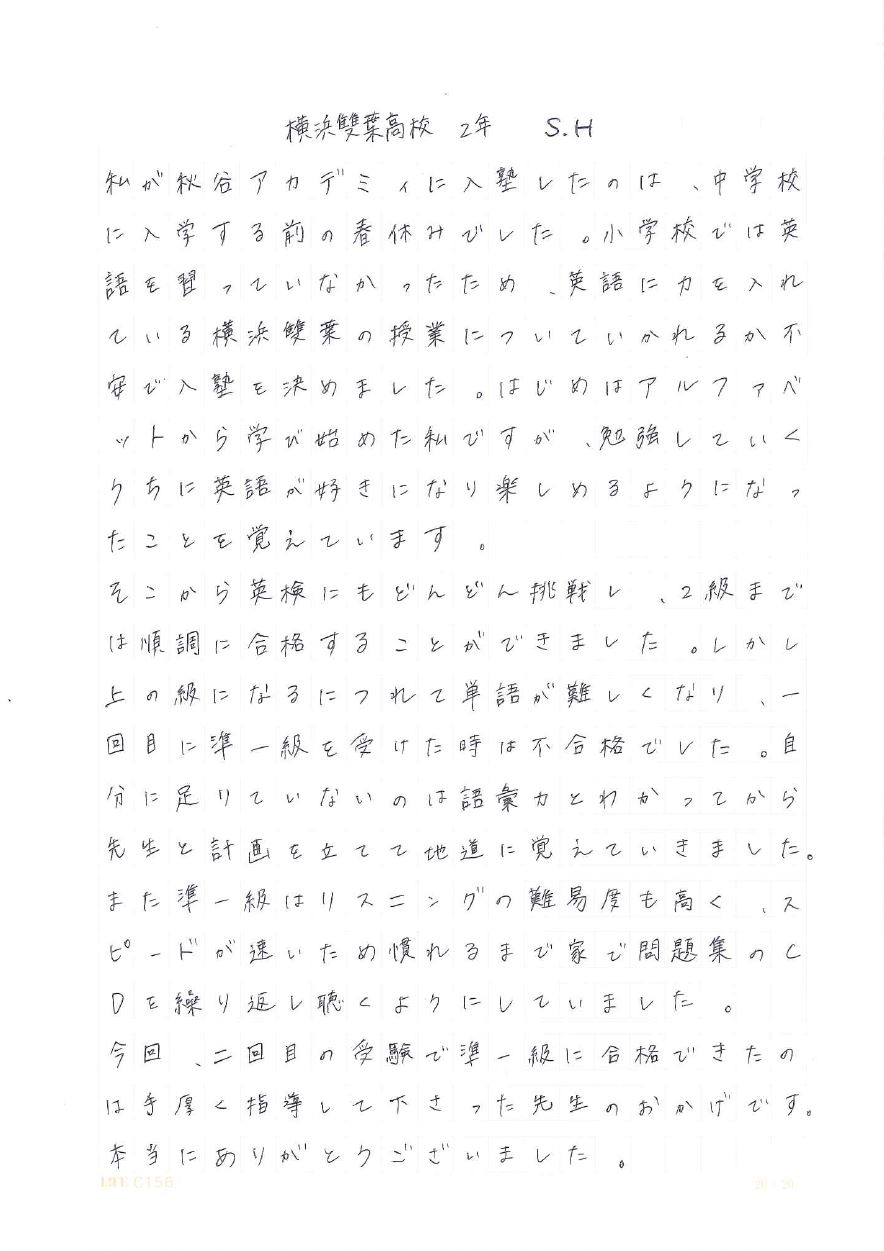 横浜雙葉高校 2年 S.H
私が秋谷アカデミィに入塾したのは、中学校
に入学する前の春休みでした。小学校では英
語を習っていなかったため、英語に力を入れ
ている横浜雙葉の授業についていかれるか不
安で入塾を決めました。はじめはアルファベ
ットから学び始めた私ですが、勉強していく
うちに英語が好きになり楽しめるようになっ
たことを覚えています。
そこから英検にもどんどん挑戦し、2級まで
は順調に合格することができました。しかし
上の級になるにつれて単語が難しくなり、一
回目に準一級を受けた時は不合格でした。自
分に足りていないのは語彙力とわかってから
先生と計画を立てて地道に覚えていきました。
また準一級はリスニングの難易度も高く、ス
ピードが速いため慣れるまで家で問題集のC
Dを繰り返し聴くようにしていました。
今回、二回目の受験で準一級に合格できたの
は手厚く指導して下さった先生のおかげです。
本当にありがとうございました。
LIFE C156 20×20